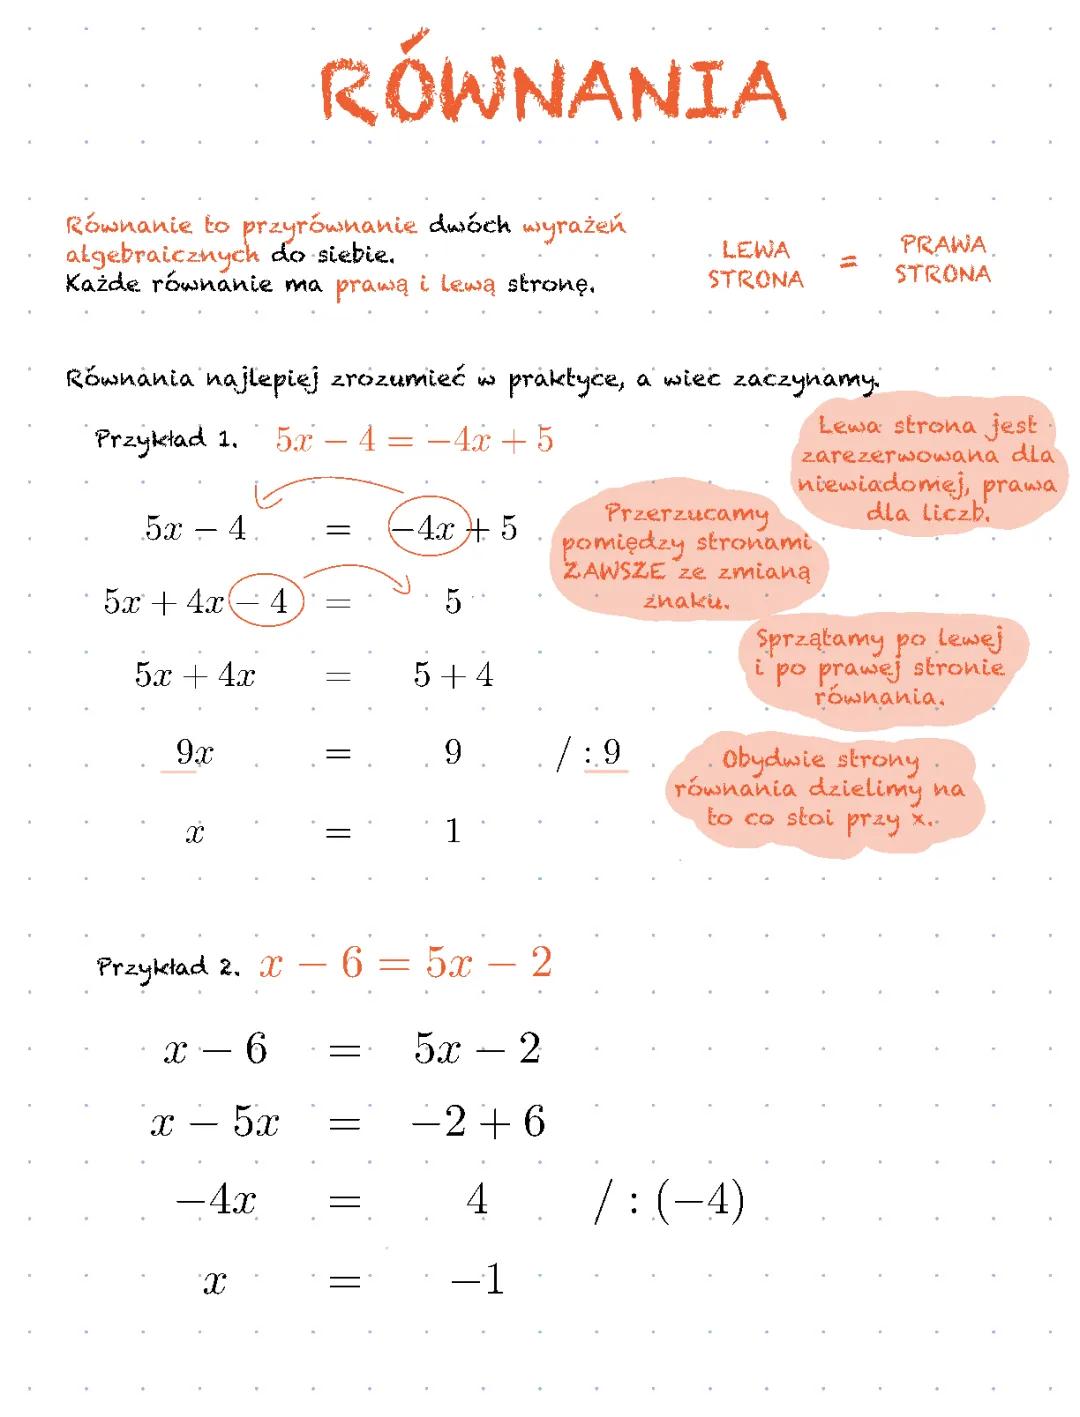 RÓWNANIA
Równanie to przyrównanie dwóch wyrażeń
algebraicznych do siebie.
Każde równanie ma prawą i lewą stronę.
LEWA
STRONA
=
PRAWA
STRONA
Równania najlepiej zrozumieć w praktyce, a wiec zaczynamy.
Przykład 1. 5x − 4 = −4x + 5
Lewa strona jest
zarezerwowana dla
niewiadomej, prawa
dla liczb.
5x − 4 = −4x + 5
Przerzucamy
pomiędzy stronami
ZAWSZE ze zmianą
znaku.
5x + 4x − 4 = 5
5x + 4x = 5 + 4
Sprzątamy po lewej
i po prawej stronie
równania.
9x = 9 / : 9
Obydwie strony
równania dzielimy na
to co stoi przy x.
x = 1
Przykład 2. x − 6 = 5x − 2
x − 6 = 5x − 2
x − 5x = −2 + 6
−4x = 4 / : (−4)
x = −1